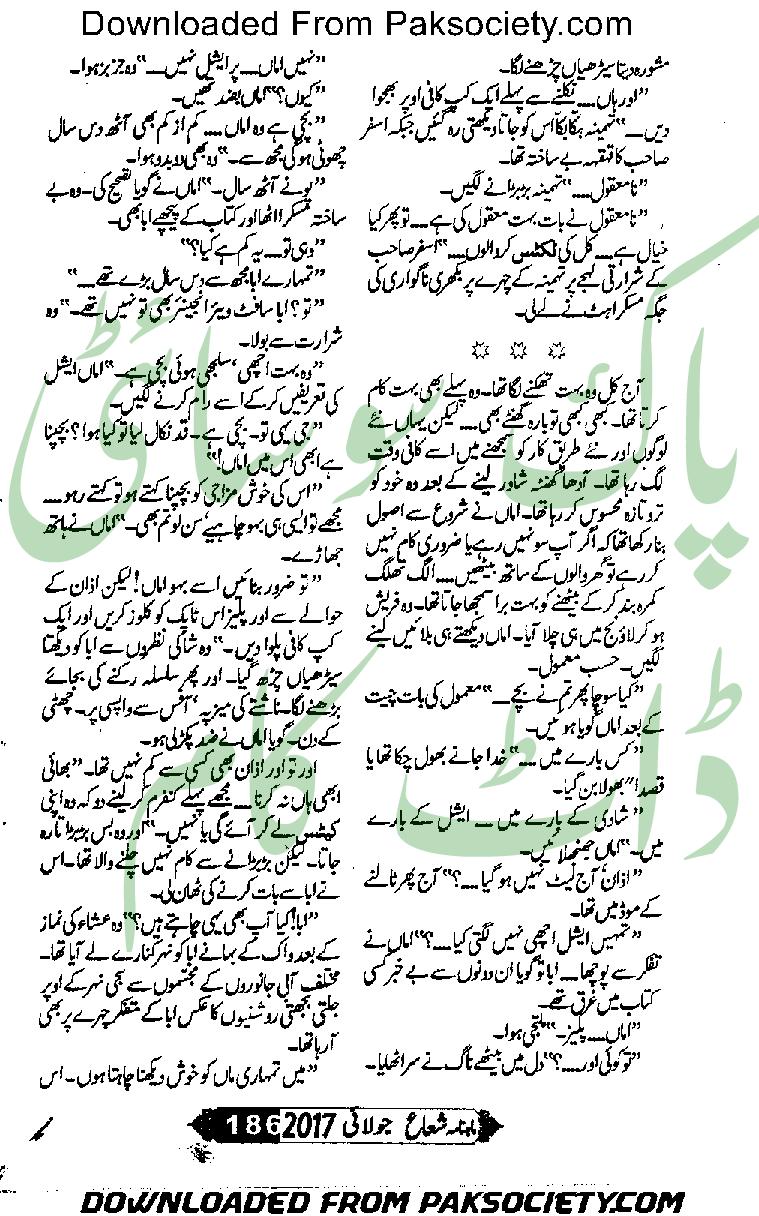 Downloaded From Paksociety.com
مشورہ دیتا سیڑھیاں چڑھنے لگا۔
”اور ہاں.... نکلنے سے پہلے ایک کپ کافی اوپر بھجوا
دیں۔۔۔“ تہمینہ ہکا بکا اس کو جاتا دیکھتی رہ گئیں جبکہ اسفر
صاحب کا قہقہہ بے ساختہ تھا۔
”نامعقول....“ تہمینہ بڑبڑانے لگیں۔
”نامعقول نے بات بہت معقول کی ہے.... تو پھر کیا
خیال ہے.... کل کی ٹکٹس کروالوں....“ اسفر صاحب
کے شرارتی لہجے پر تہمینہ کے چہرے پر بکھری ناگواری کی
جگہ مسکراہٹ نے لے لی۔
آج کل وہ بہت تھکنے لگا تھا۔ وہ پہلے بھی بہت کام
کرتا تھا۔ کبھی کبھی تو بارہ گھنٹے بھی.... لیکن یہاں نئے
لوگوں اور نئے طریق کار کو سمجھنے میں اسے کافی وقت
لگ رہا تھا۔ آدھا گھنٹہ شاور لینے کے بعد وہ خود کو
تروتازہ محسوس کر رہا تھا۔ اماں نے شروع سے اصول
بنا رکھا تھا کہ اگر آپ سو نہیں رہے یا ضروری کام نہیں
کر رہے تو گھر والوں کے ساتھ بیٹھیں.... الگ تھلگ
کمرہ بند کر کے بیٹھنے کو بہت برا سمجھا جاتا تھا۔ وہ فریش
ہو کر لاؤنج میں ہی چلا آیا۔ اماں دیکھتے ہی بلائیں لینے
لگیں۔ حسب معمول۔
”کیا سوچا پھر تم نے بچے....“ معمول کی بات چیت
کے بعد اماں گویا ہوئیں۔
”کس بارے میں....“ خدا جانے بھول چکا تھا یا
قصداً بھولا بن گیا۔
”شادی کے بارے میں۔۔۔ ایشل کے بارے
میں۔“ اماں جھنجھلائیں۔
”اذان آج لیٹ نہیں ہو گیا....؟“ آج پھر ٹالنے
کے موڈ میں تھا۔
”تمہیں ایشل اچھی نہیں لگتی کیا....؟“ اماں نے
تفکر سے پوچھا۔ ابا تو گویا ان دونوں سے بے خبر کسی
کتاب میں غرق تھے۔
”اماں.... پلیز۔“ ملتجی ہوا۔
”تو کوئی اور....؟“ دل میں بیٹھے ناگ نے سر اٹھایا۔
”نہیں اماں.... پر ایشل نہیں....“ وہ جزبز ہوا۔
”کیوں؟“ اماں بضد تھیں۔
”بچی ہے وہ اماں.... کم از کم بھی آٹھ دس سال
چھوٹی ہو گی مجھ سے۔“ وہ بھی دوبدو ہوا۔
”پونے آٹھ سال۔“ اماں نے گویا تصحیح کی۔ وہ بے
ساختہ مسکرا اٹھا اور کتاب کے پیچھے ابا بھی۔
”وہی تو.... یہ کم ہے کیا؟“
”تمہارے ابا مجھ سے دس سال بڑے تھے....“
”تو؟ ابا سافٹ ویئر انجینئر بھی تو نہیں تھے۔“ وہ
شرارت سے بولا۔
”وہ بہت اچھی، سلجھی ہوئی بچی ہے۔“ اماں ایشل
کی تعریفیں کر کے اسے رام کرنے لگیں۔
”جی یہی تو۔ بچی ہے۔ قد نکال لیا تو کیا ہوا؟ بچپنا
ہے ابھی اس میں اماں!“
”اس کی خوش مزاجی کو بچپنا کہتے ہو تو کہتے رہو....
مجھے تو ایسی ہی بہو چاہیے، سن لو تم بھی۔“ اماں نے ہاتھ
جھاڑے۔
”تو ضرور بنائیں اسے بہو اماں! لیکن اذان کے
حوالے سے اور پلیز اس ٹاپک کو کلوز کریں اور ایک
کپ کافی پلوا دیں۔“ وہ شاکی نظروں سے ابا کو دیکھتا
سیڑھیاں چڑھ گیا۔ اور پھر سلسلہ رکنے کی بجائے
بڑھنے لگا۔ ناشتے کی میز پہ، آفس سے واپسی پر۔ چھٹی
کے دن۔ گویا اماں نے ضد پکڑ لی ہو۔
اور تو اور اذان بھی کسی سے کم نہیں تھا۔ ”بھائی
ابھی ہاں نہ کرنا.... مجھے پہلے کنفرم کر لینے دو کہ وہ اپنی
کیٹس لے کر آئے گی یا نہیں۔“ اور وہ بس بڑبڑاتا رہ
جاتا۔ لیکن بڑبڑانے سے کام نہیں چلنے والا تھا۔ اس
نے ابا سے بات کرنے کی ٹھان لی۔
”ابا! کیا آپ بھی یہی چاہتے ہیں؟“ وہ عشاء کی نماز
کے بعد واک کے بہانے ابا کو نہر کنارے لے آیا تھا۔
مختلف آبی جانوروں کے مجسموں سے سجی نہر کے اوپر
جلتی بجھتی روشنیوں کا عکس ابا کے متفکر چہرے پر بھی
آ رہا تھا۔
”میں تمہاری ماں کو خوش دیکھنا چاہتا ہوں۔ اس
پاک سوسائٹی
ڈاٹ کام
ماہنامہ شعاع جولائی 2017 186
DOWNLOADED FROM PAKSOCIETY.COM